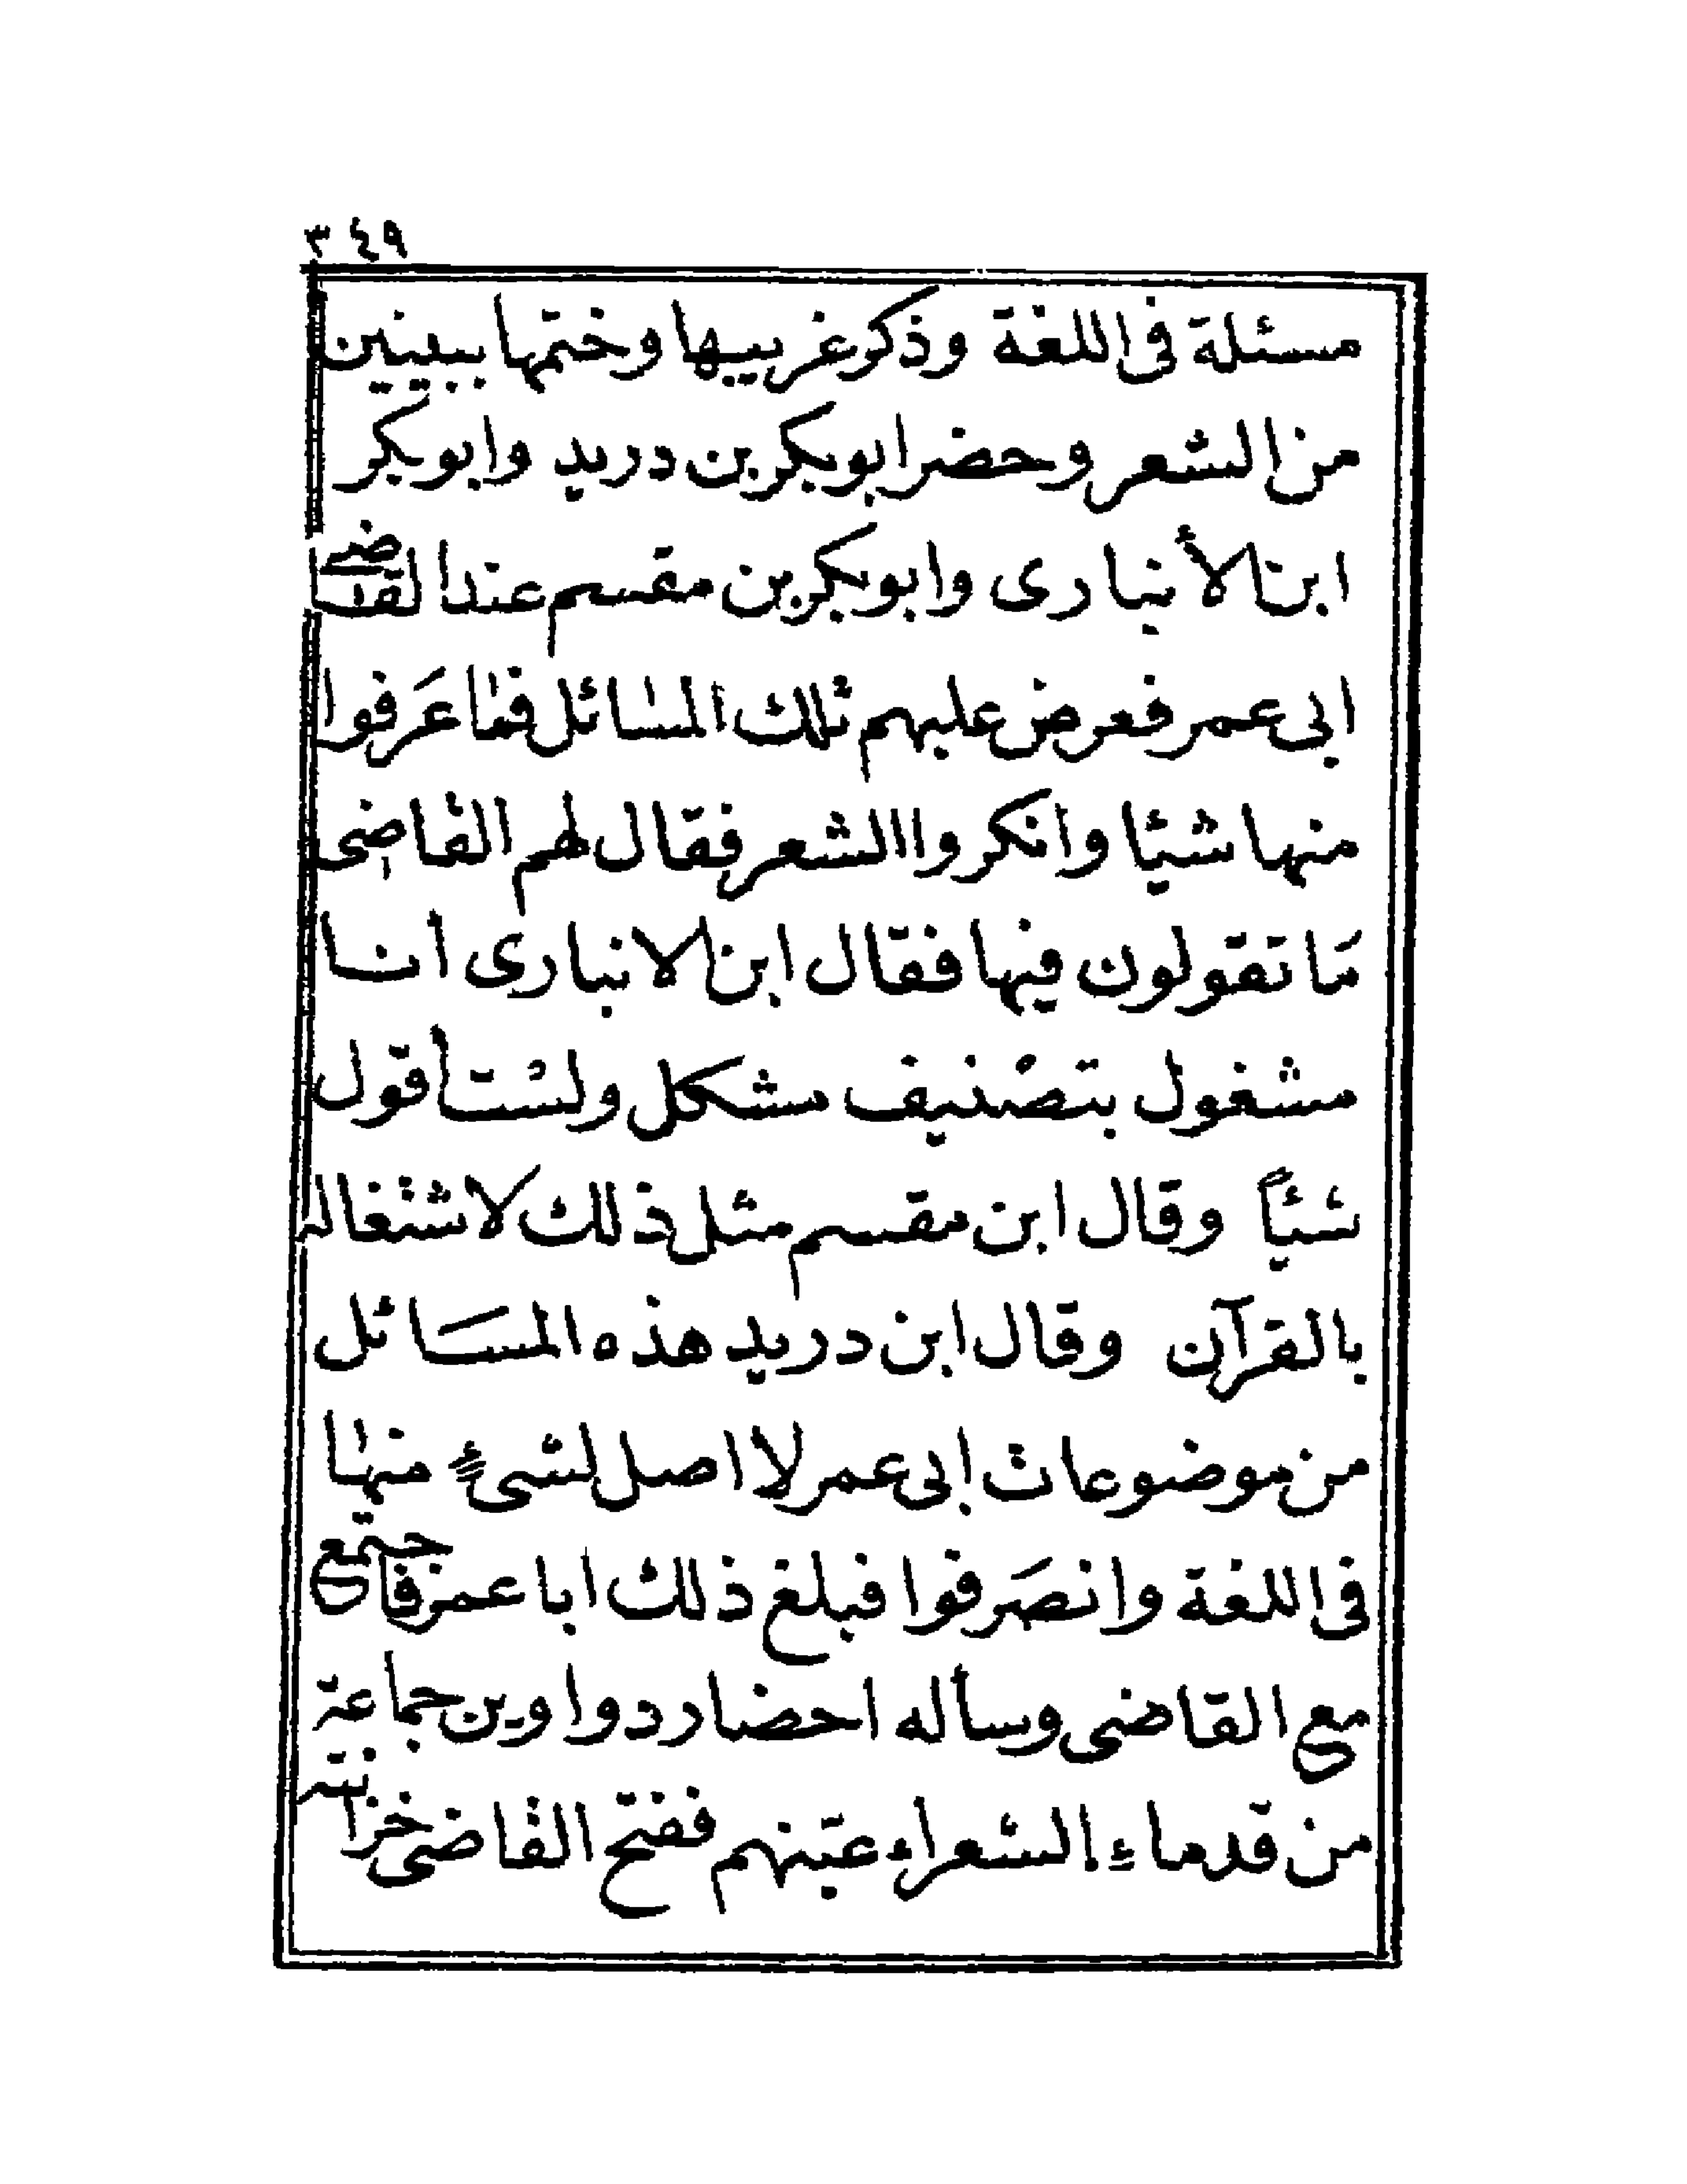 ٣٤٩
مسئلة فى اللغة وذكر غريبها وختمها ببيتين
من الشعر وحضر ابو بكر بن دريد وابو بكر
ابن الأنبارى وابو بكر بن مقسم عند القاضى
ابى عمر فعرض عليهم تلك المسائل فما عَرفوا
منها شيئا وانكروا الشعر فقال لهم القاضى
مَا تقولون فيها فقال ابن الانبارى انا
مشغول بتصْنيف مشكل ولسْت أقول
شيئاً وقال ابن مقسم مثل ذلك لاشتغاله
بالقرآن وقال ابن دريد هذه المسَائل
من موضوعات ابى عمر لا اصل لشىءٍ منها
فى اللغة وانصَرفوا فبلغ ذلك ابا عمر فاجتمع
مع القاضى وسأله احضار دواوين جماعة
من قدماء الشعراء عيّنهم ففتح القاضى خزانته